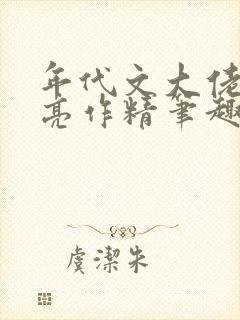 年代文大佬
亮作精笔趣
虞潔朱